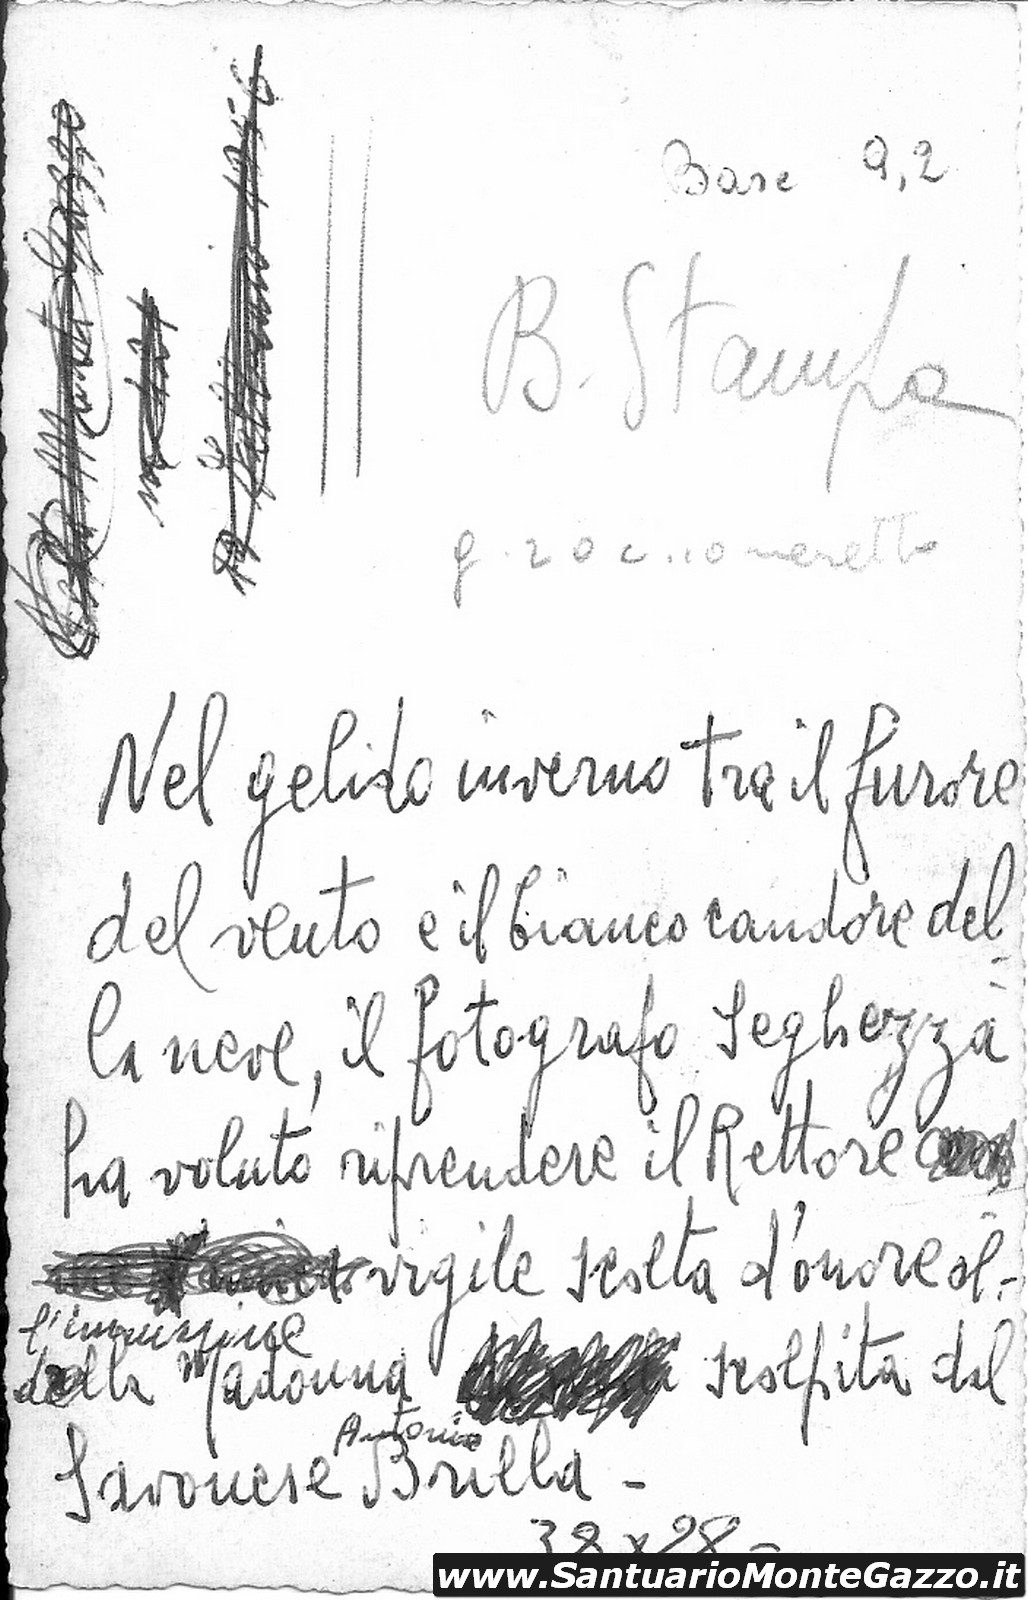 Base 9,2
B. Stampa
Nel gelido inverno tra il furore
del vento e il bianco candore del-
la neve, il fotografo Seghezza
ha voluto riprendere il Rettore
vigile scolta d'onore al-
l'immagine
della Madonna scolpita dal
Antonio
Savonese Brilla -
38 x 28 -
www.SantuarioMonteGazzo.it